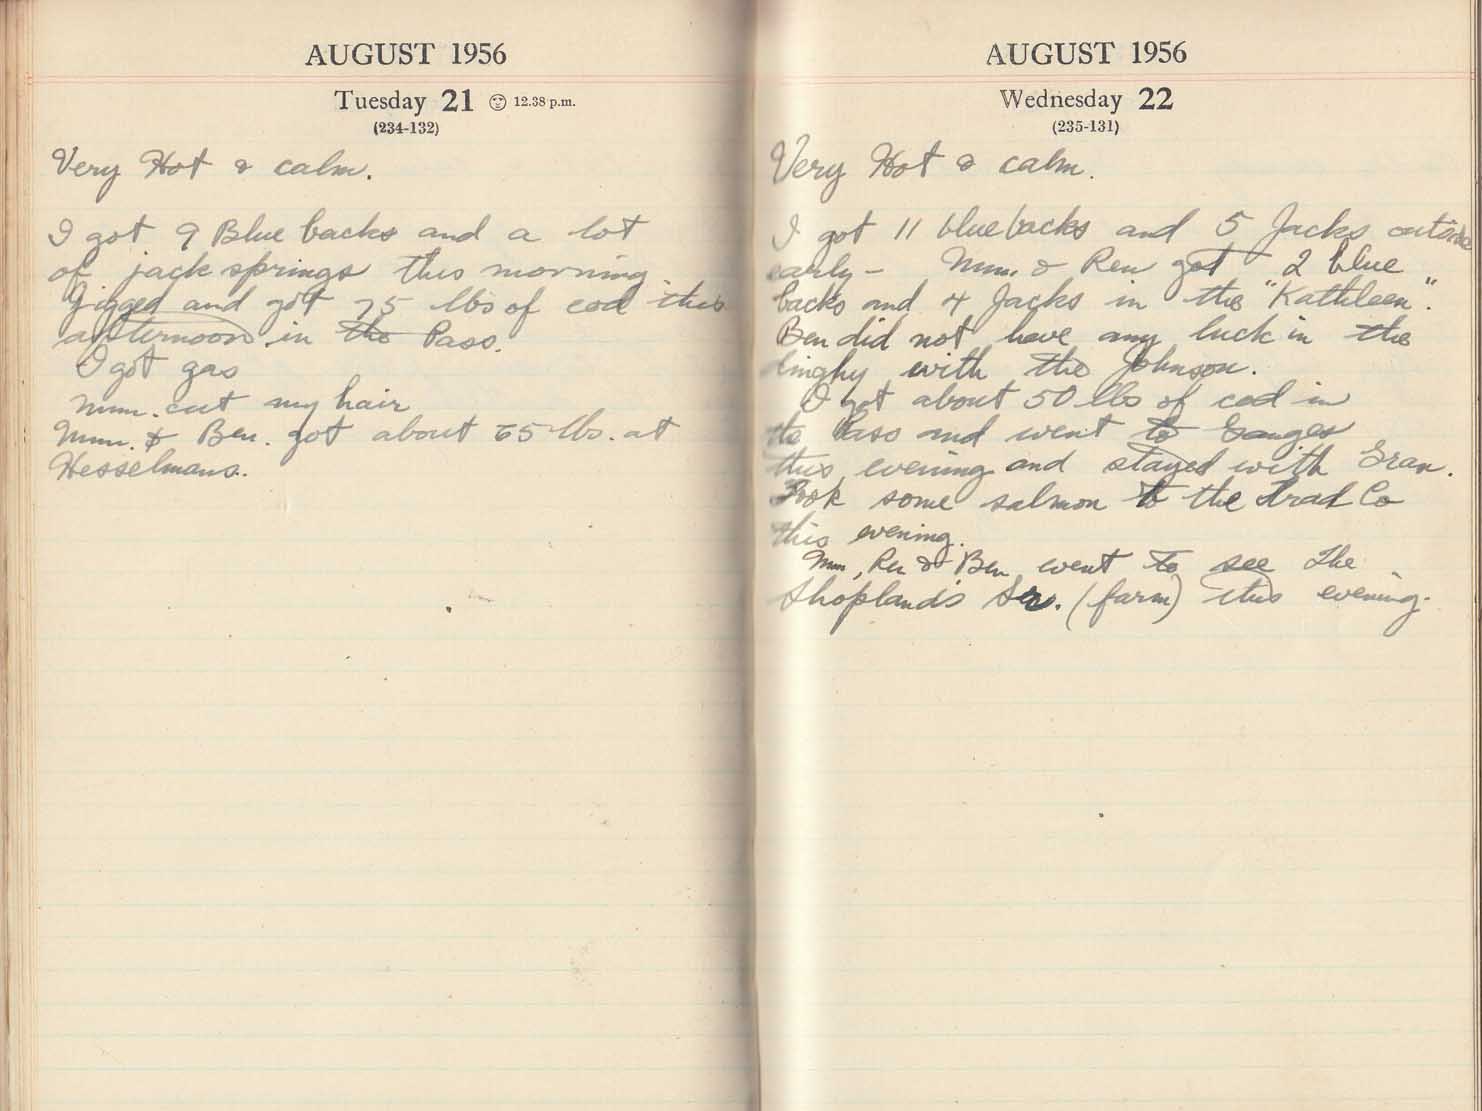 AUGUST 1956
Tuesday 21 12.38 p.m.
(234-132)
Very Hot & calm.
I got 9 Blue backs and a lot
of jack springs this morning
Jigged and got 75 lbs of cod this
afternoon in the Pass.
I got gas
Mum. cut my hair
Mum. & Ben. got about 65 lbs. at
Hesselmans.
AUGUST 1956
Wednesday 22
(235-131)
Very Hot & calm.
I got 11 bluebacks and 5 Jacks outside
early - Mum. & Ren got 2 blue
backs and 4 Jacks in the "Kathleen".
Ben did not have any luck in the
dinghy with the Johnson.
I got about 50 lbs of cod in
the Pass and went to Ganges
this evening and stayed with Gran.
Took some salmon to the Trad Co
this evening.
Mum, Ren & Ben went to see The
Shopland's Sr. (farm) this evening.